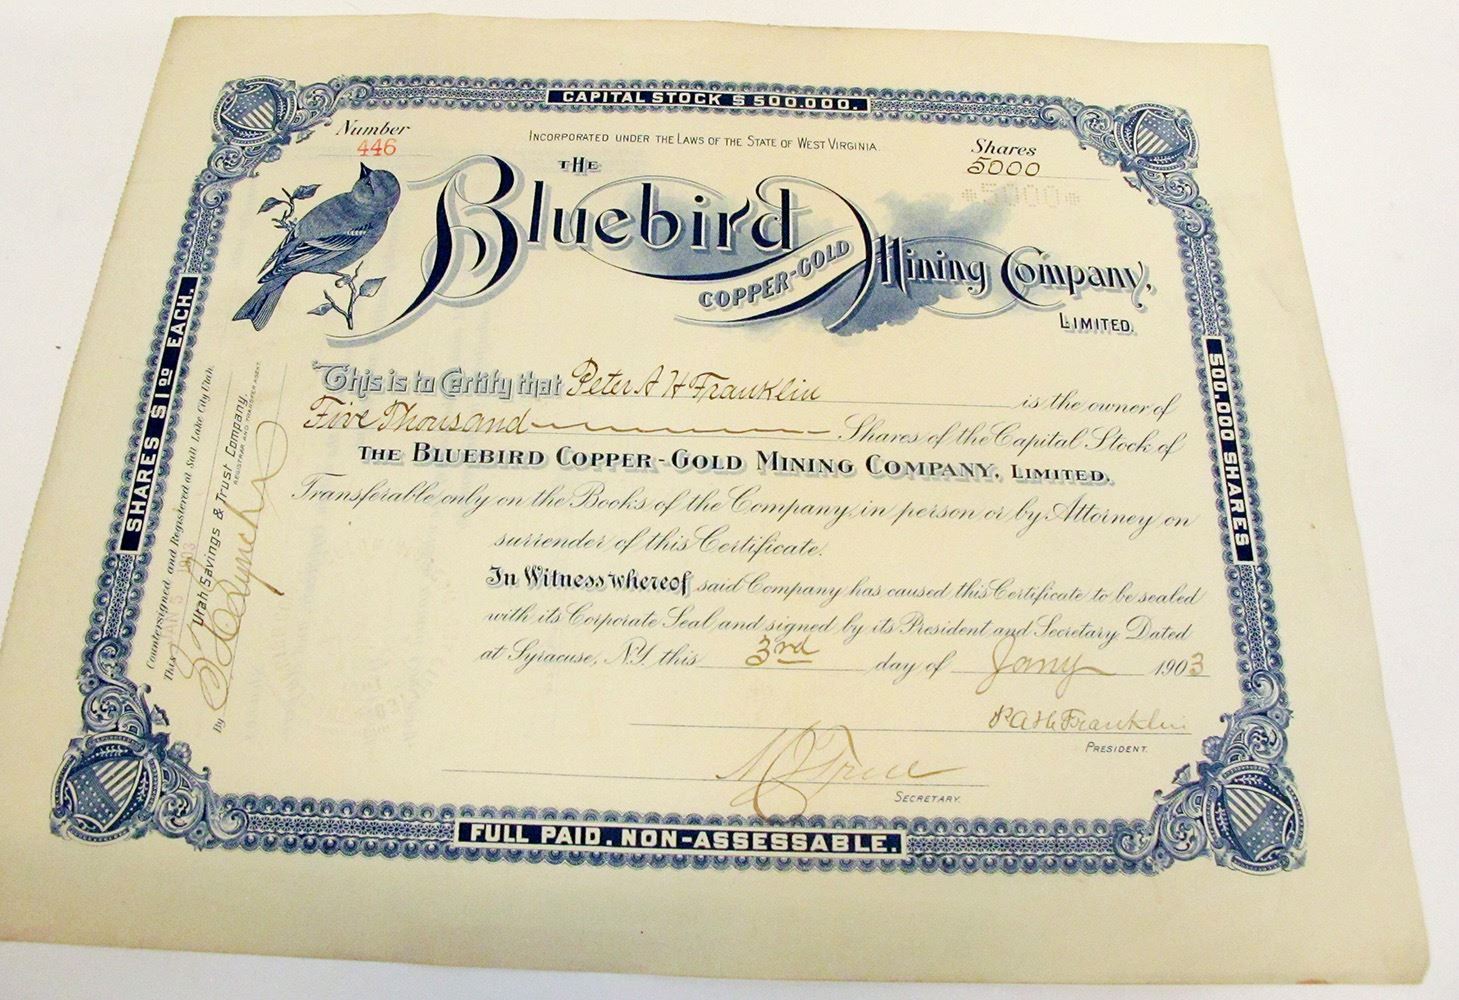 CAPITAL STOCK $500.000.
Number
446
INCORPORATED UNDER THE LAWS OF THE STATE OF WEST VIRGINIA
Shares
5000
5000
THE
Bluebird
COPPER-GOLD
Mining Company,
LIMITED.
This is to Certify that Peter A H Franklin is the owner of
Five Thousand Shares of the Capital Stock of
THE BLUEBIRD COPPER-GOLD MINING COMPANY, LIMITED.
Transferable only on the Books of the Company, in person or by Attorney on
surrender of this Certificate.
In Witness whereof said Company has caused this Certificate to be sealed
with its Corporate Seal and signed by its President and Secretary. Dated
at Syracuse, N.Y. this 3rd day of Jany 1903
P A H Franklin
PRESIDENT.
SECRETARY.
FULL PAID. NON-ASSESSABLE.
SHARES $1 00 EACH.
500,000 SHARES
Countersigned and Registered at Salt Lake City Utah.
This JAN 5 1903
Utah Savings & Trust Company.
REGISTRAR AND TRANSFER AGENT
By